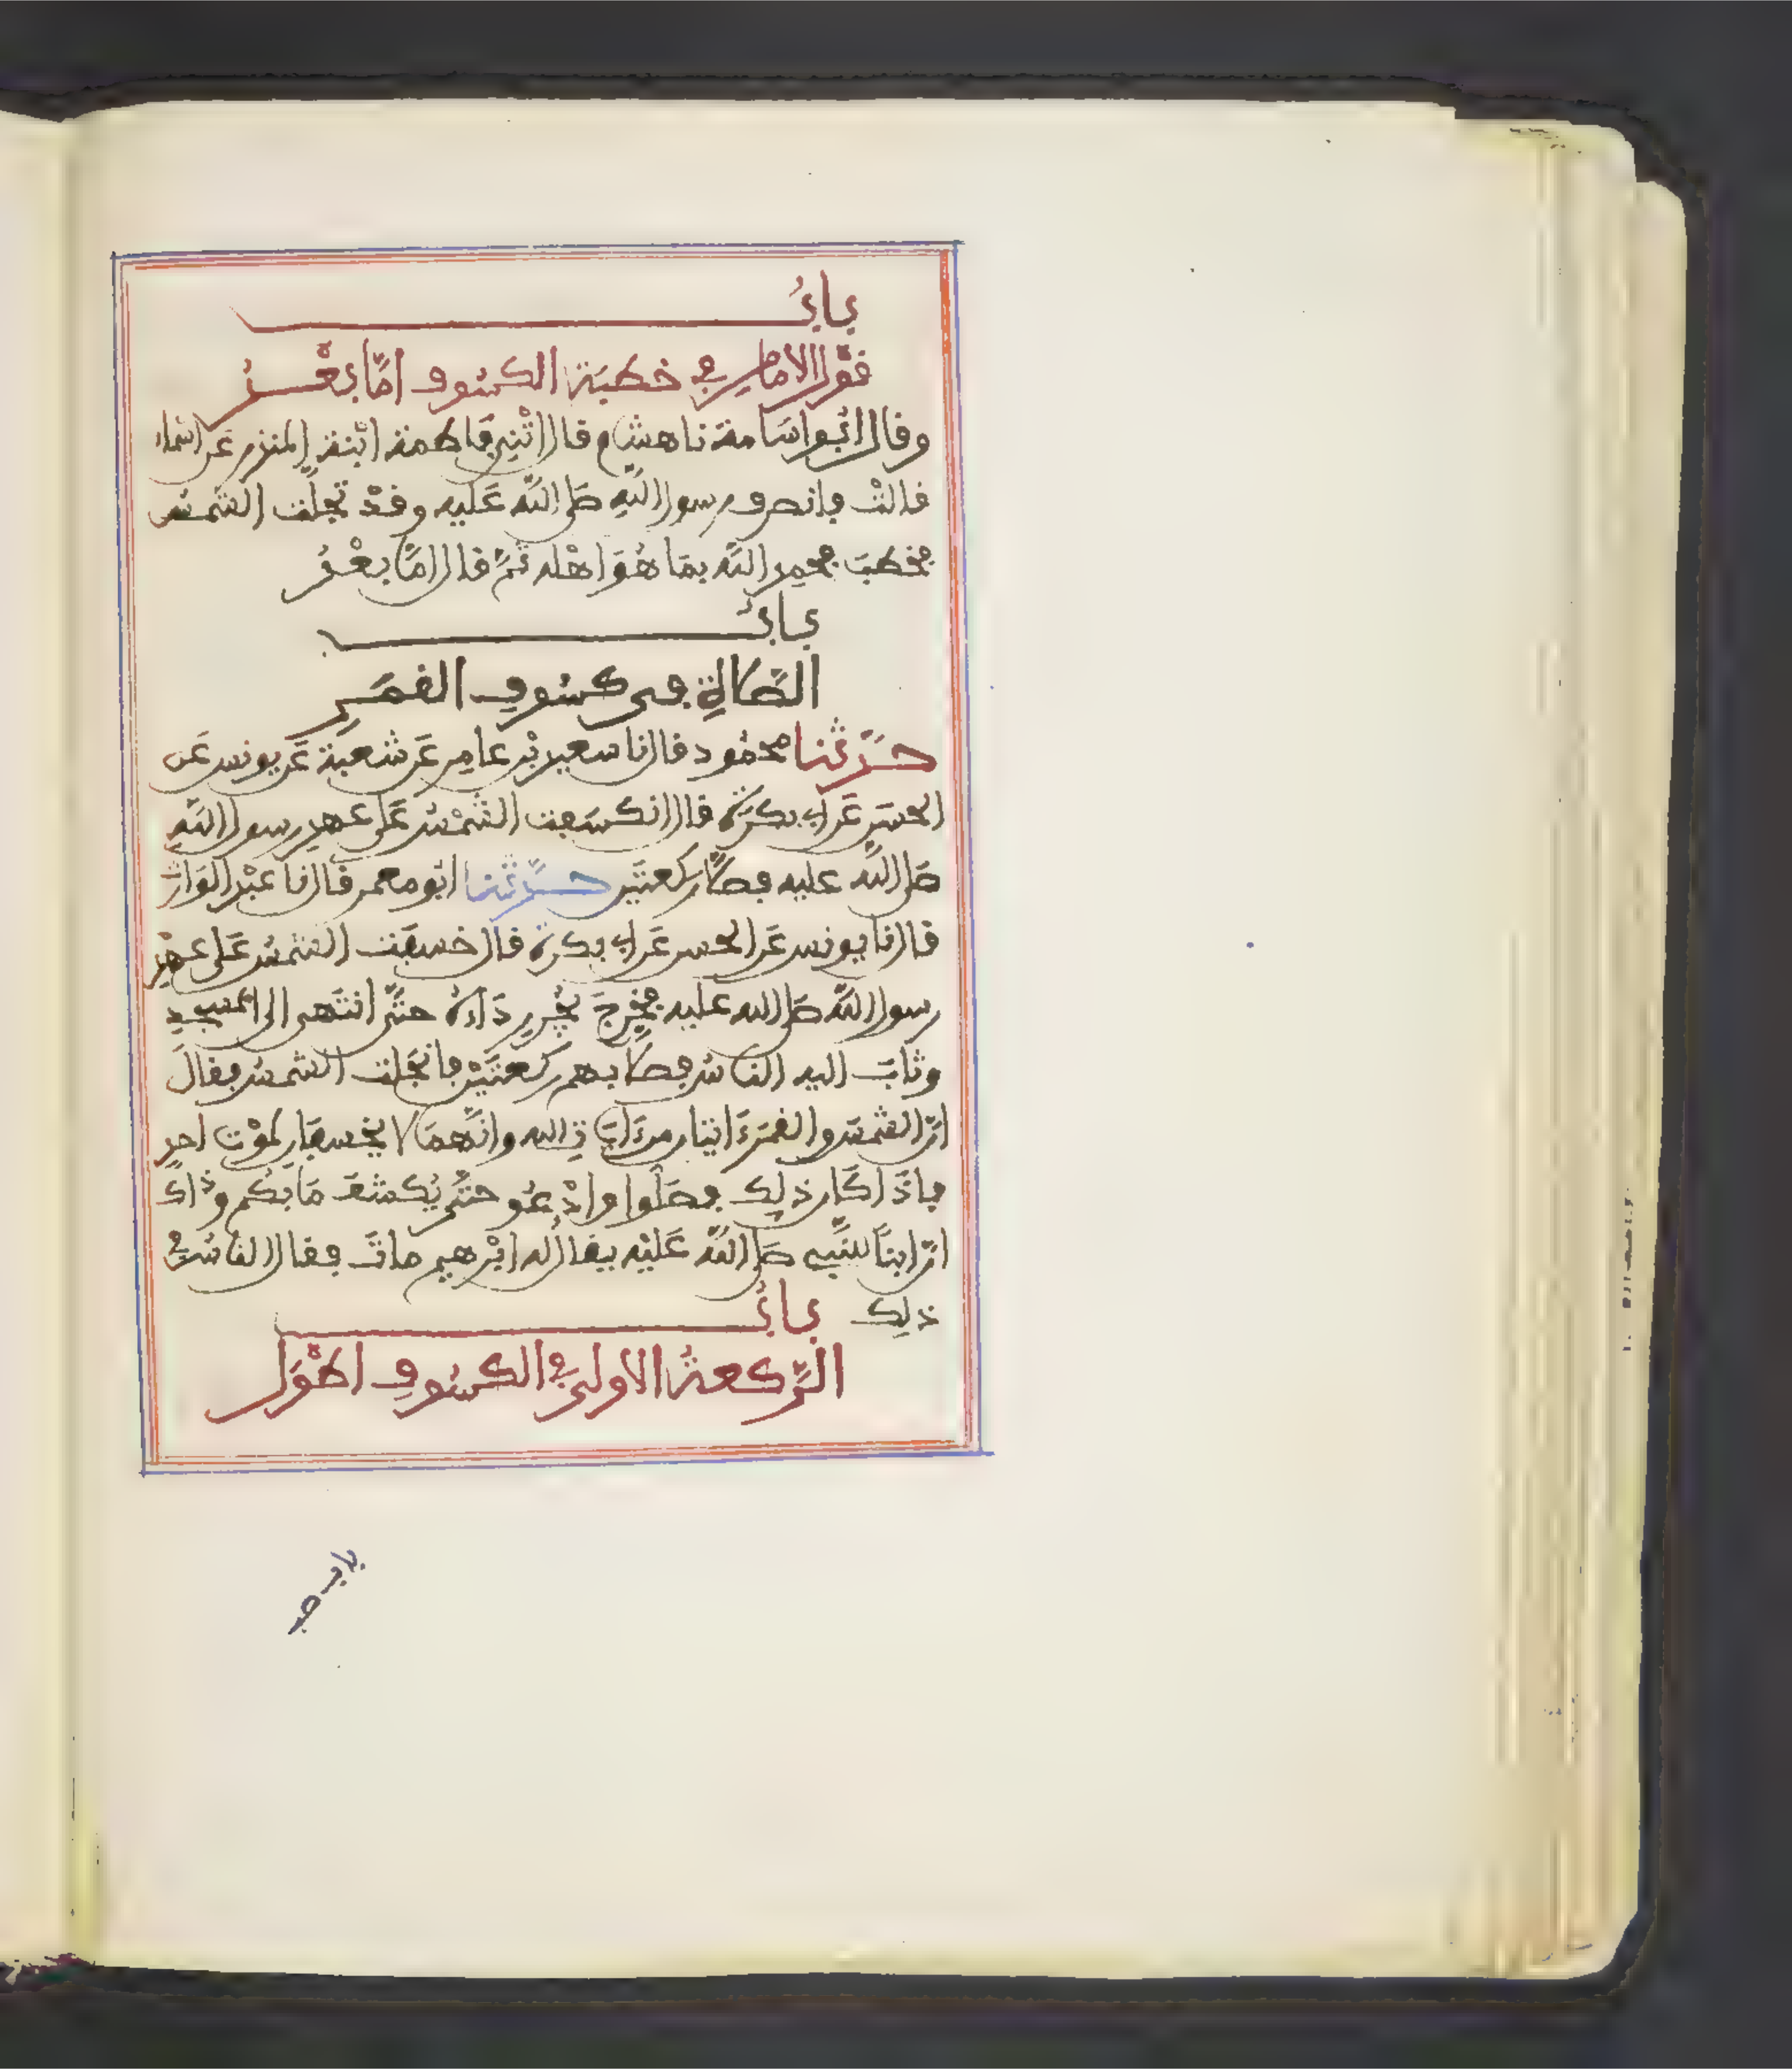 باب
قَوْل الامام في خطبَة الكسُوف امَّا بعْدُ
وقال ابُو اسَامة نا هشام قال اثْنِي فَاطمة ابْنة المنذر عَن اسْمَاء
قالتْ فانصرف رسول اللهِ صَلى اللهُ عَليه وقدْ تجلّت الشمسُ
فخطبَ فحمِد اللهَ بمَا هُوَ اهْله ثمَّ قال امَّا بعْدُ
بابُ
الصَّلاةِ في كسُوفِ القمَرِ
حدَّثنا محمُود قال نا سعيد بْن عامِر عَن شعبَة عَن يونس عَن
الحسَنِ عَن ابي بكرَةَ قال انكسَفت الشمْسُ عَلى عهدِ رسول اللهِ
صَلى اللهُ عليه فصلَّى ركعتَين حدَّثنا ابُو معمر قال نا عبْد الوَارث
قال نا يونس عَن الحسن عَن ابي بكرة قال خسفَت الشمسُ عَلى عهْدِ
رسول اللهِ صَلى الله عليه فخرجَ يجُر رِدَاءَهُ حتَّى انتَهى الى المسجِدِ
وثابَ اليه الناسُ فصلى بهم ركعتَيْن فانجَلت الشمسُ فقالَ
انّ الشمسَ والقمرَ ءَايتان من ءَايَاتِ الله وانَّهمَا لا يخسفَانِ لموْت احدٍ
فاذَا كَان ذلِك فصَلّوا وادْعُو حتَّى يُكشفَ مَا بكم وذاك
انّ ابنًا للنّبيِ صَلى اللهُ عَليْه يقال له ابْرهيم ماتَ فقال الناسُ في
ذلِك بابُ
الرَّكعةُ الاولى في الكسُوفِ اطْوَل
باب صب